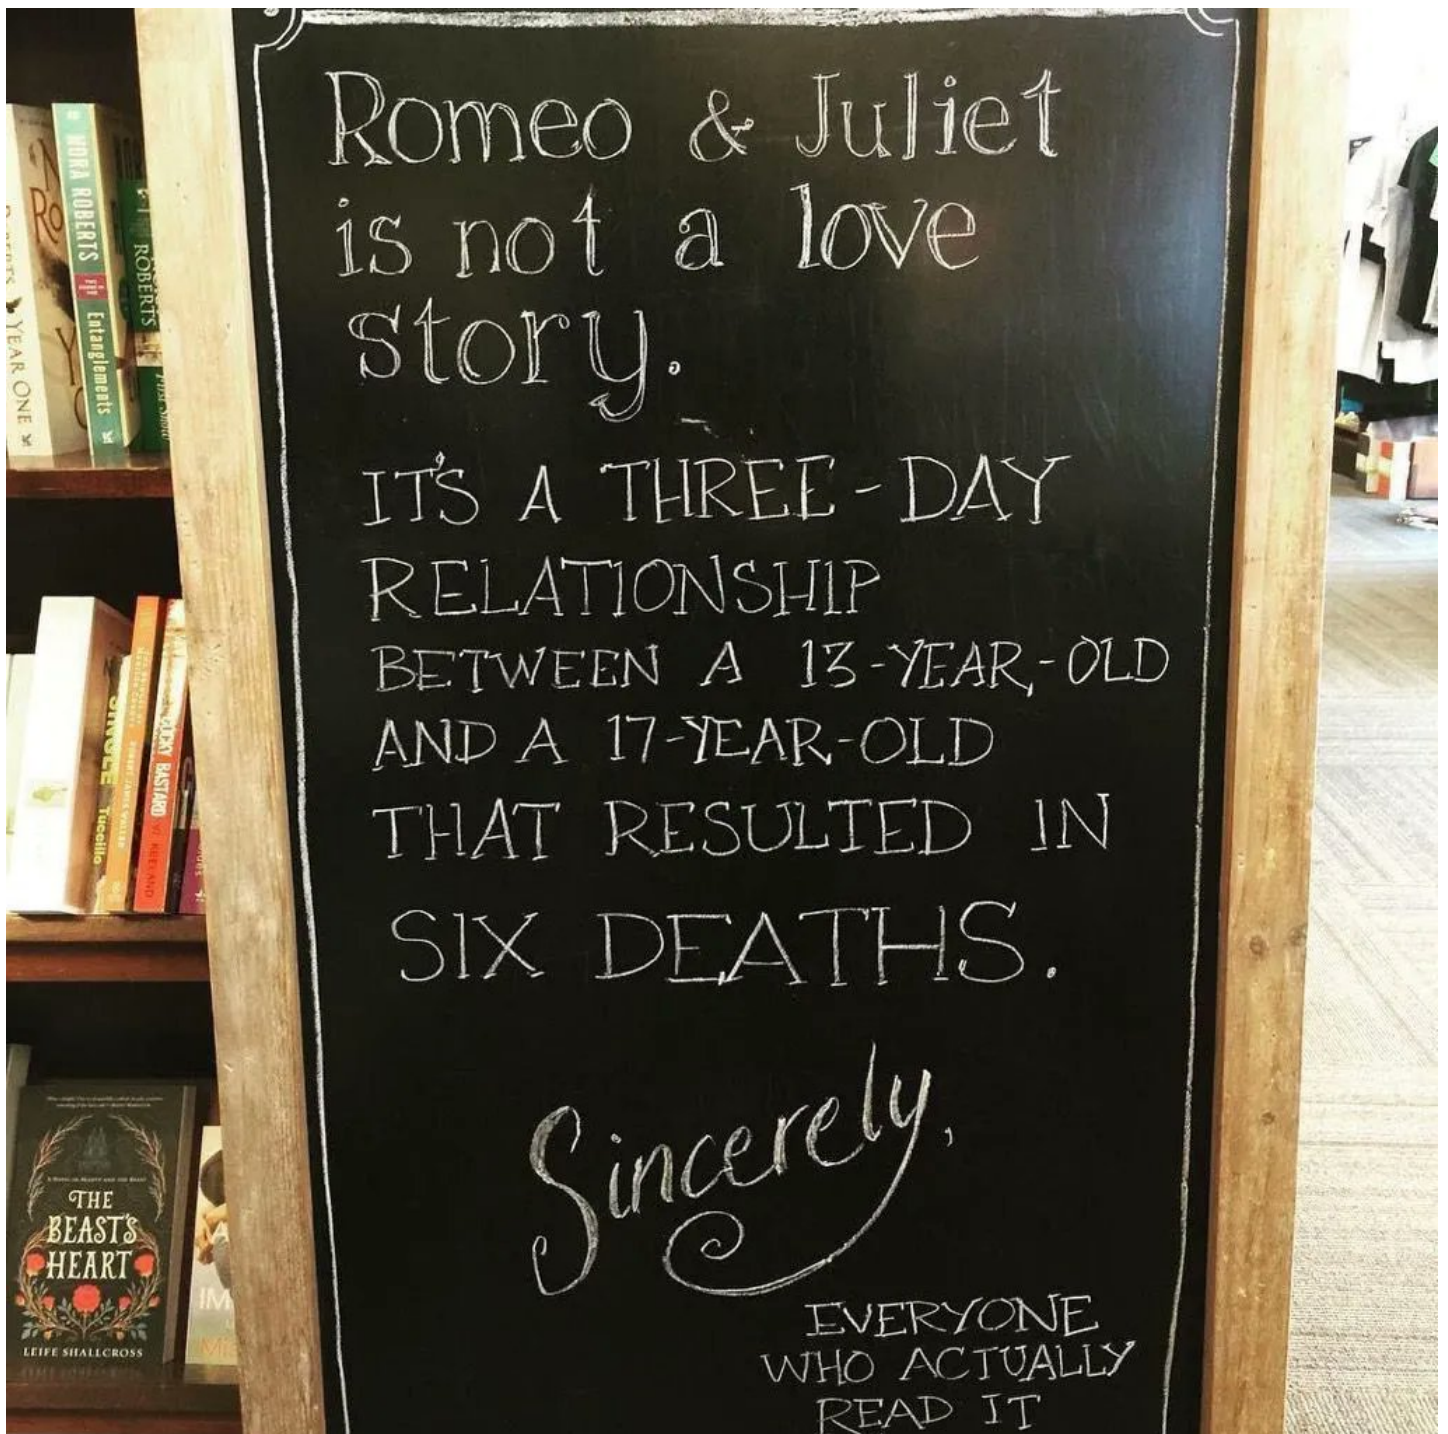 Romeo & Juliet
is not a love
story.
IT'S A THREE-DAY
RELATIONSHIP
BETWEEN A 13-YEAR-OLD
AND A 17-YEAR-OLD
THAT RESULTED IN
SIX DEATHS.
Sincerely,
EVERYONE
WHO ACTUALLY
READ IT
YEAR ONE
NORA ROBERTS
Entanglements
ROBERTS
SINGLE Tuccillo
LUCKY BASTARD
THE
BEAST'S
HEART
LEIFE SHALLCROSS